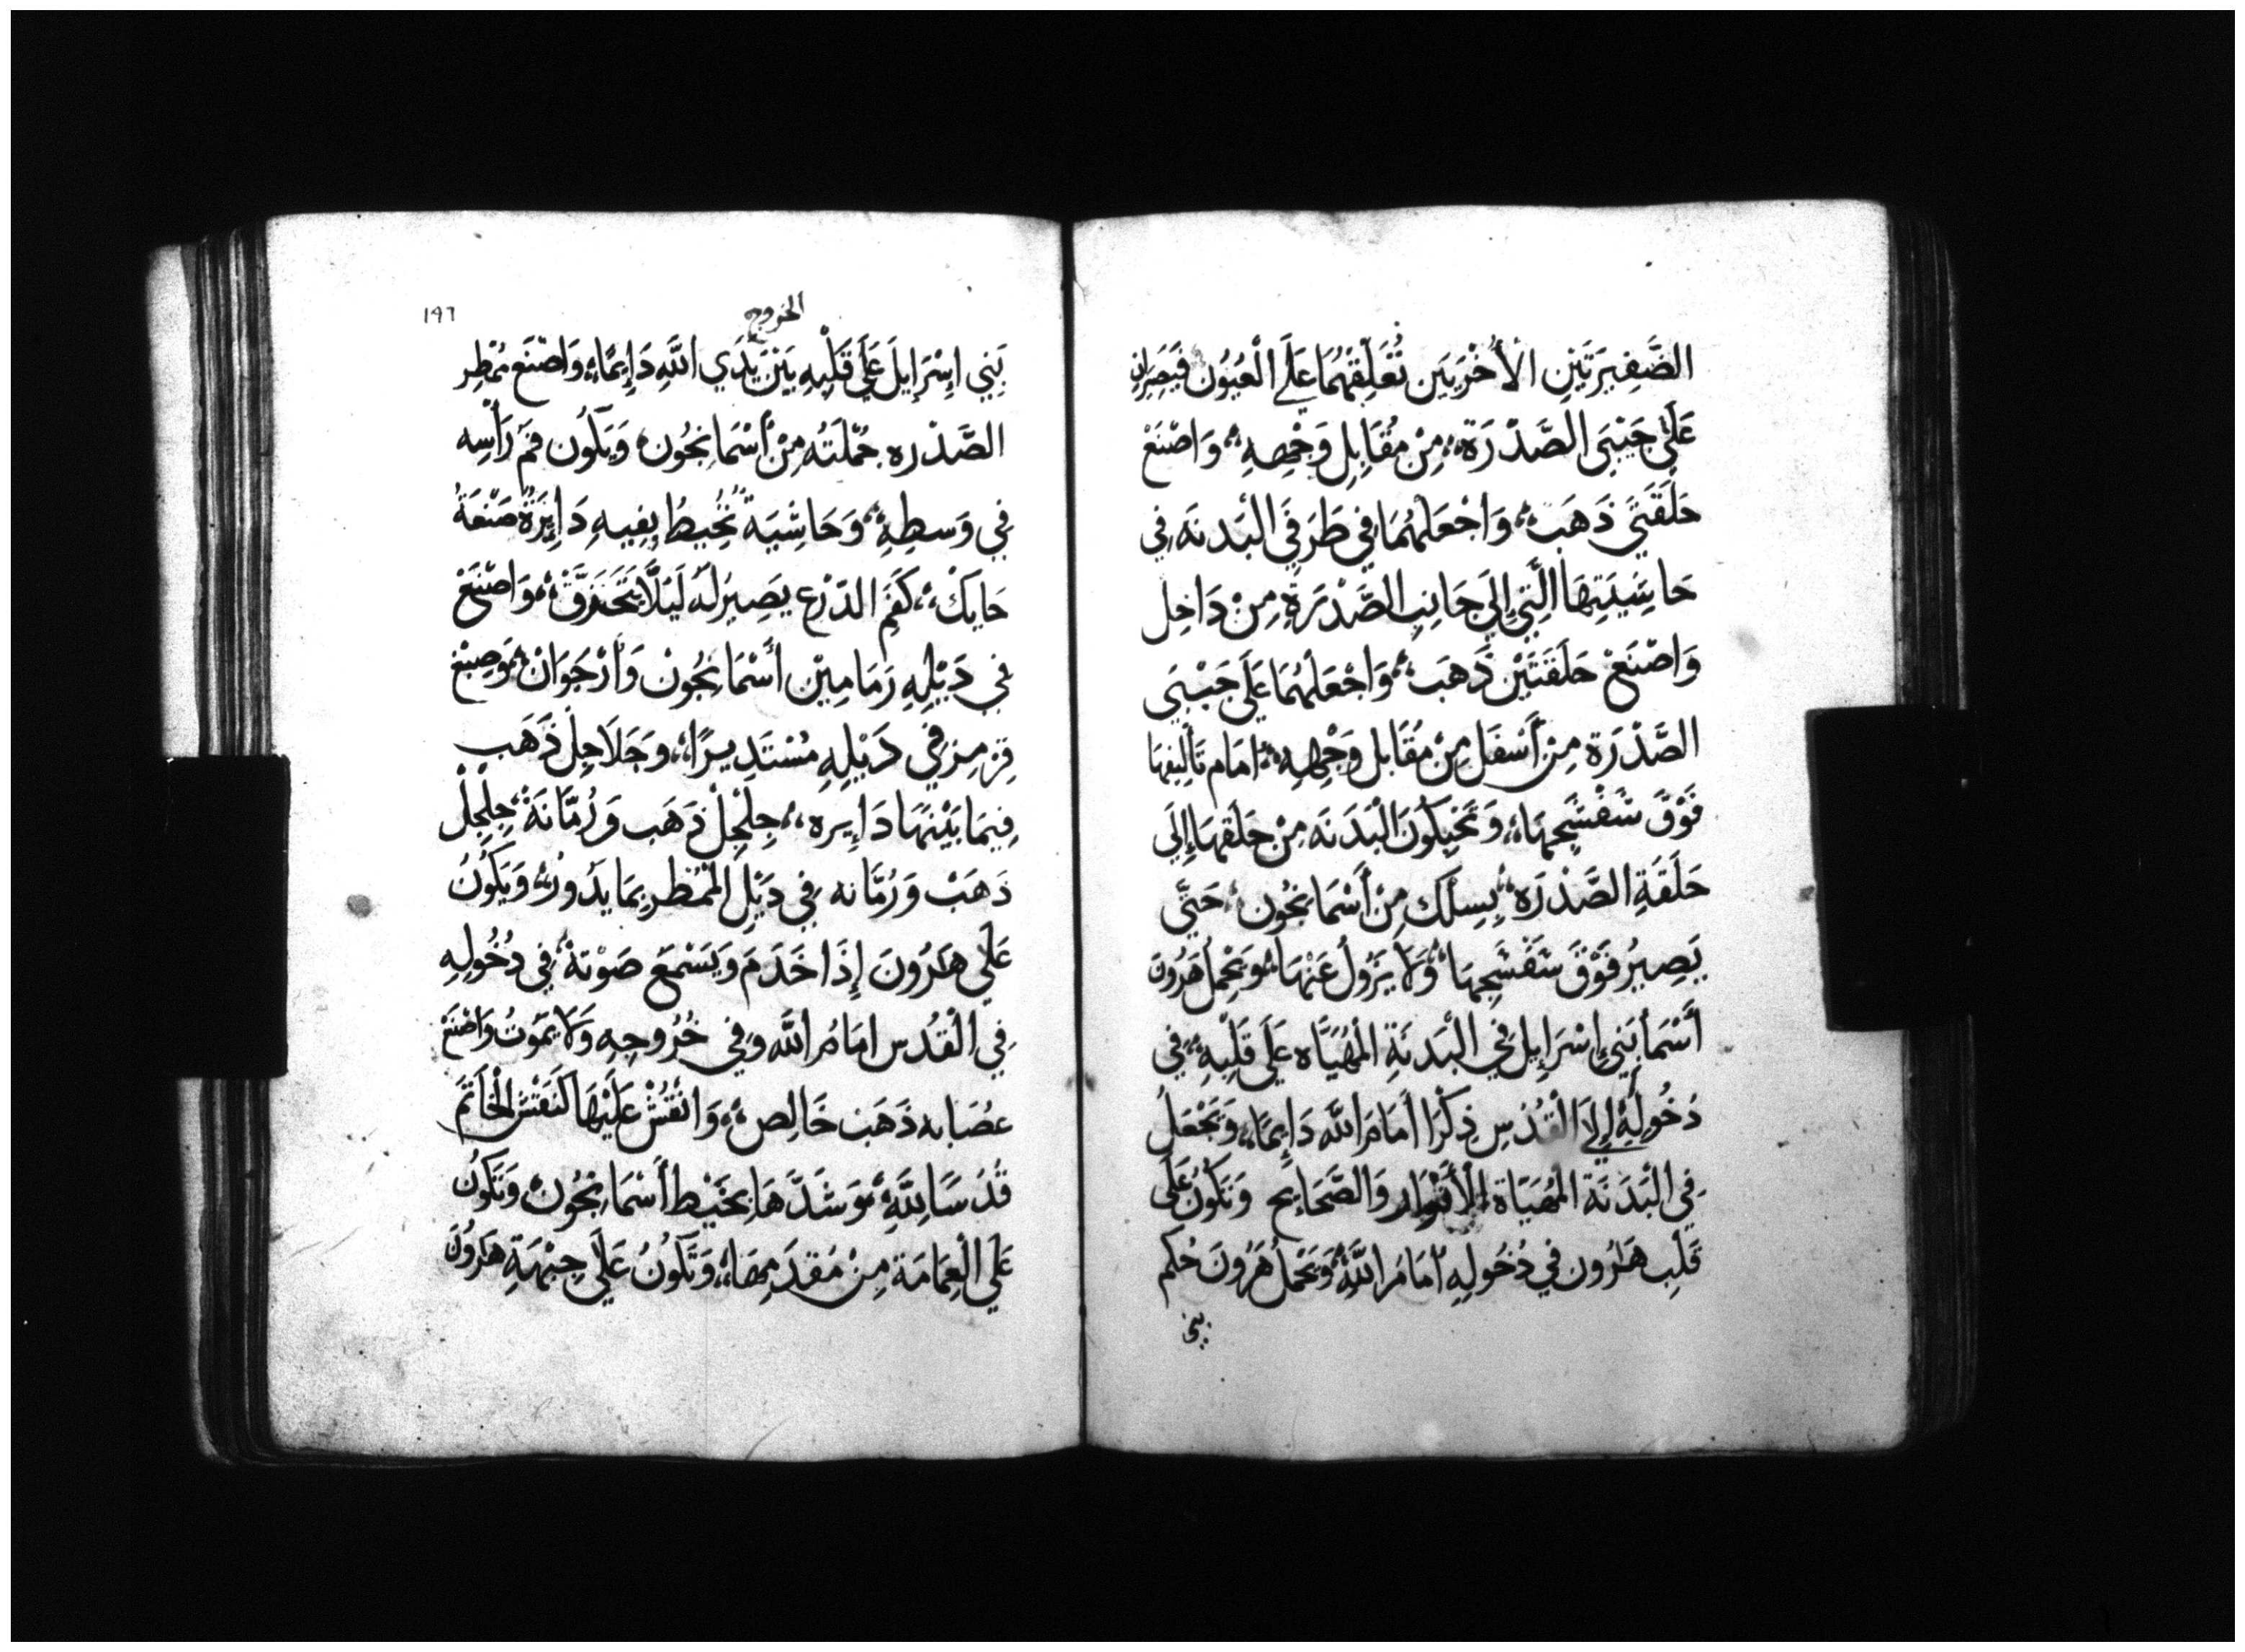 الضَّفِيرَتَيْنِ الأُخْرَيَين تُعَلِقهُمَا عَلَى الْعُيُون فَيَصِيرَانِ
عَلَى جَنْبَي الصَّدْرَة، مِنْ مُقَابِلِ وَجْهِهِ، وَاصْنَعْ
حَلَقَتَي ذَهَب، وَاجْعَلهُمَا فِي طَرَفَي البَدنَه فِي
حَاشِيَتِهَا الَّتِي إِلَي جَانِبِ الصَّدْرَةِ مِنْ دَاخِل
وَاصْنَعْ حَلَقَتَيْن ذَهَب، وَاجْعَلهُمَا عَلَى جَنْبَي
الصَّدْرَة مِنْ أَسْفَل مِنْ مُقَابل وَجْهِهِ، امَام تَألِيفِهَا
فَوْقَ شَفْشَجِهَا، وَتُحْبَكُونَ الْبَدَنَه مِنْ حلَقهَا إِلَي
حَلَقَةِ الصَّدْرَه، بِسِلك مِنْ أَسْمَانجُون، حَتَّي
يَصِيرُ فَوْقَ شَفْشَجِهَا، وَلَا يَزُولُ عَنْهَا، وَيَحْمِلُ هَرُونَ
أَسْمَا بَنِي إِسْرَايِل فِي الْبَدنَةِ الْمُهَيَّاه عَلَي قَلْبِهِ، فِي
دخُولِهِ إِلَي الْقُدْسِ ذِكْرًا أَمَامَ اللَّه دَايِمًا، وَتَجْعَلُ
فِي الْبَدَنَة الْمُهَيَّاة الأَنْوَار وَالصَّحَايِح وَتَكُونُ عَلَى
قَلْبِ هَارُون فِي دُخُولِهِ أَمَامَ اللَّهِ، وَيَحْمِلُ هَرُونَ حُكم
بني
الخروج
١٩٦
بَنِي إِسْرَايِلَ عَلَى قَلْبِهِ بَيْنَ يَدَي اللَّهِ دَايِمًا، وَاصْنَع مُمْطِر
الصَّدْرَه جُمْلَتُه مِنْ أَسْمَانجُون، وَيَكُون فَمُ رَأْسِه
فِي وَسطِهِ، وَحَاشِيَةً تُحِيطُ بِفِيهِ دَايِرَةً صَنْعَةُ
حَايِكْ، كَفَمِ الدَرْع يَصِيرُ لَهُ لَيَلَّا يَتَخَرَّقْ، وَاصْنَعْ
فِي دَيْلِهِ رَمَامِيْن أَسْمَانجُونْ وَأُرْجَوَانْ، وَصِبْغ
قِرْمِز فِي دَيْلِهِ مُسْتَدِيرًا، وجَلَاجِلْ ذَهَب
فِيمَا بَيْنَهَا دَايِره، جِلْجِلْ ذَهَب وَرُمَّانَةْ، جِلْجِلْ
ذَهَبْ وَرُمَّانه فِي دَيْلِ الْمُمْطِرِ بِمَا يَدُورُ، وَيَكُونُ
عَلَى هَارُونَ إِذَا خَدَمَ وَيَسْمَع صَوْتهُ، فِي دُخُولِهِ
فِي الْقُدْس امَامُ اللَّه وَفِي خُرُوجِهِ وَلَا يَمُوتُ وَاصْنَعْ
عصَابه ذَهَب خَالِص، وَانْقُشْ عَلَيْهَا كَنَقْشِ الْخَاتَمِ
قُدْسًا لِلَّهِ، وَشَدَّهَا بِخَيْط أَسْمَانجُون وَتَكُونُ
عَلَي الْعِمَامَة مِنْ مُقَدَمِهَا، وَتَكُونُ عَلَى جِبْهَةِ هَارُونَ